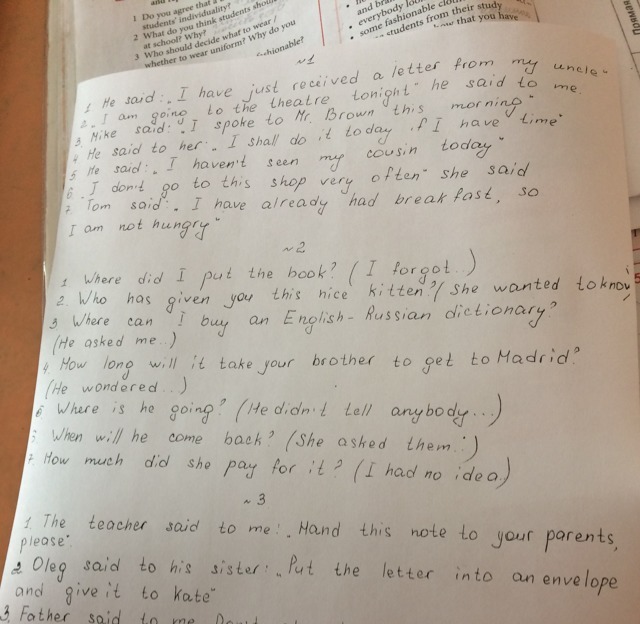 1 Do you agree that a
students' individuality?
2 What do you think students
at school? Why?
3 Who should decide what to wear /
whether to wear uniform? Why do you
fashionable?
and
everybody
some fashionable
students from their study
that you have
№1
1. He said: „I have just received a letter from my uncle"
2. „I am going to the theatre tonight" he said to me.
3. Mike said: „I spoke to Mr. Brown this morning"
4. He said to her: „I shall do it today if I have time"
5 He said: „I haven't seen my cousin today"
6. „I don't go to this shop very often" she said
7. Tom said: „I have already had breakfast, so
I am not hungry"
№2
1 Where did I put the book? (I forgot..)
2. Who has given you this nice kitten? (She wanted to know
3 Where can I buy an English-Russian dictionary?
(He asked me..)
4. How long will it take your brother to get to Madrid?
(He wondered...)
6 Where is he going? (He didn't tell anybody...)
5. When will he come back? (She asked them..)
7. How much did she pay for it? (I had no idea.)
№3
1. The teacher said to me: „Hand this note to your parents,
please".
2. Oleg said to his sister: „Put the letter into an envelope
and give it to Kate"
3. Father said to me